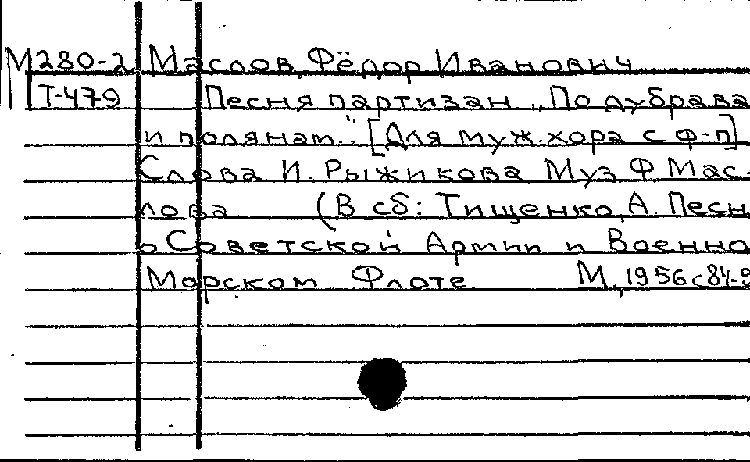 М280-2 Маслов, Фёдор Иванович
Т-479 Песня партизан „По дубрава
и полянам.." [Для муж. хора с ф-п]
Слова И. Рыжикова Муз Ф Мас-
лова (В сб: Тищенко, А. Песн
о Советской Армии и Военно
Морском Флоте М, 1956 с 84-9